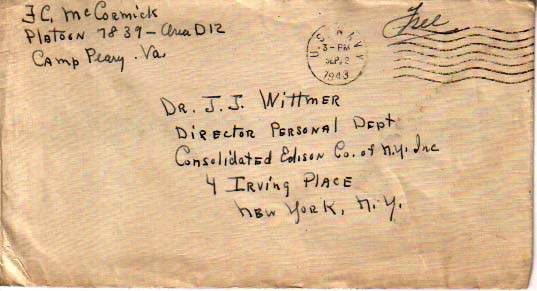 F.C. McCormick
Platoon 7839 - Area D12
Camp Peary . Va
U.S. NAVY
3 - PM
SEP 2
1943
Free
Dr. J. J. Wittmer
Director Personal Dept
Consolidated Edison Co. of N.Y. Inc
4 Irving Place
New York, N.Y.